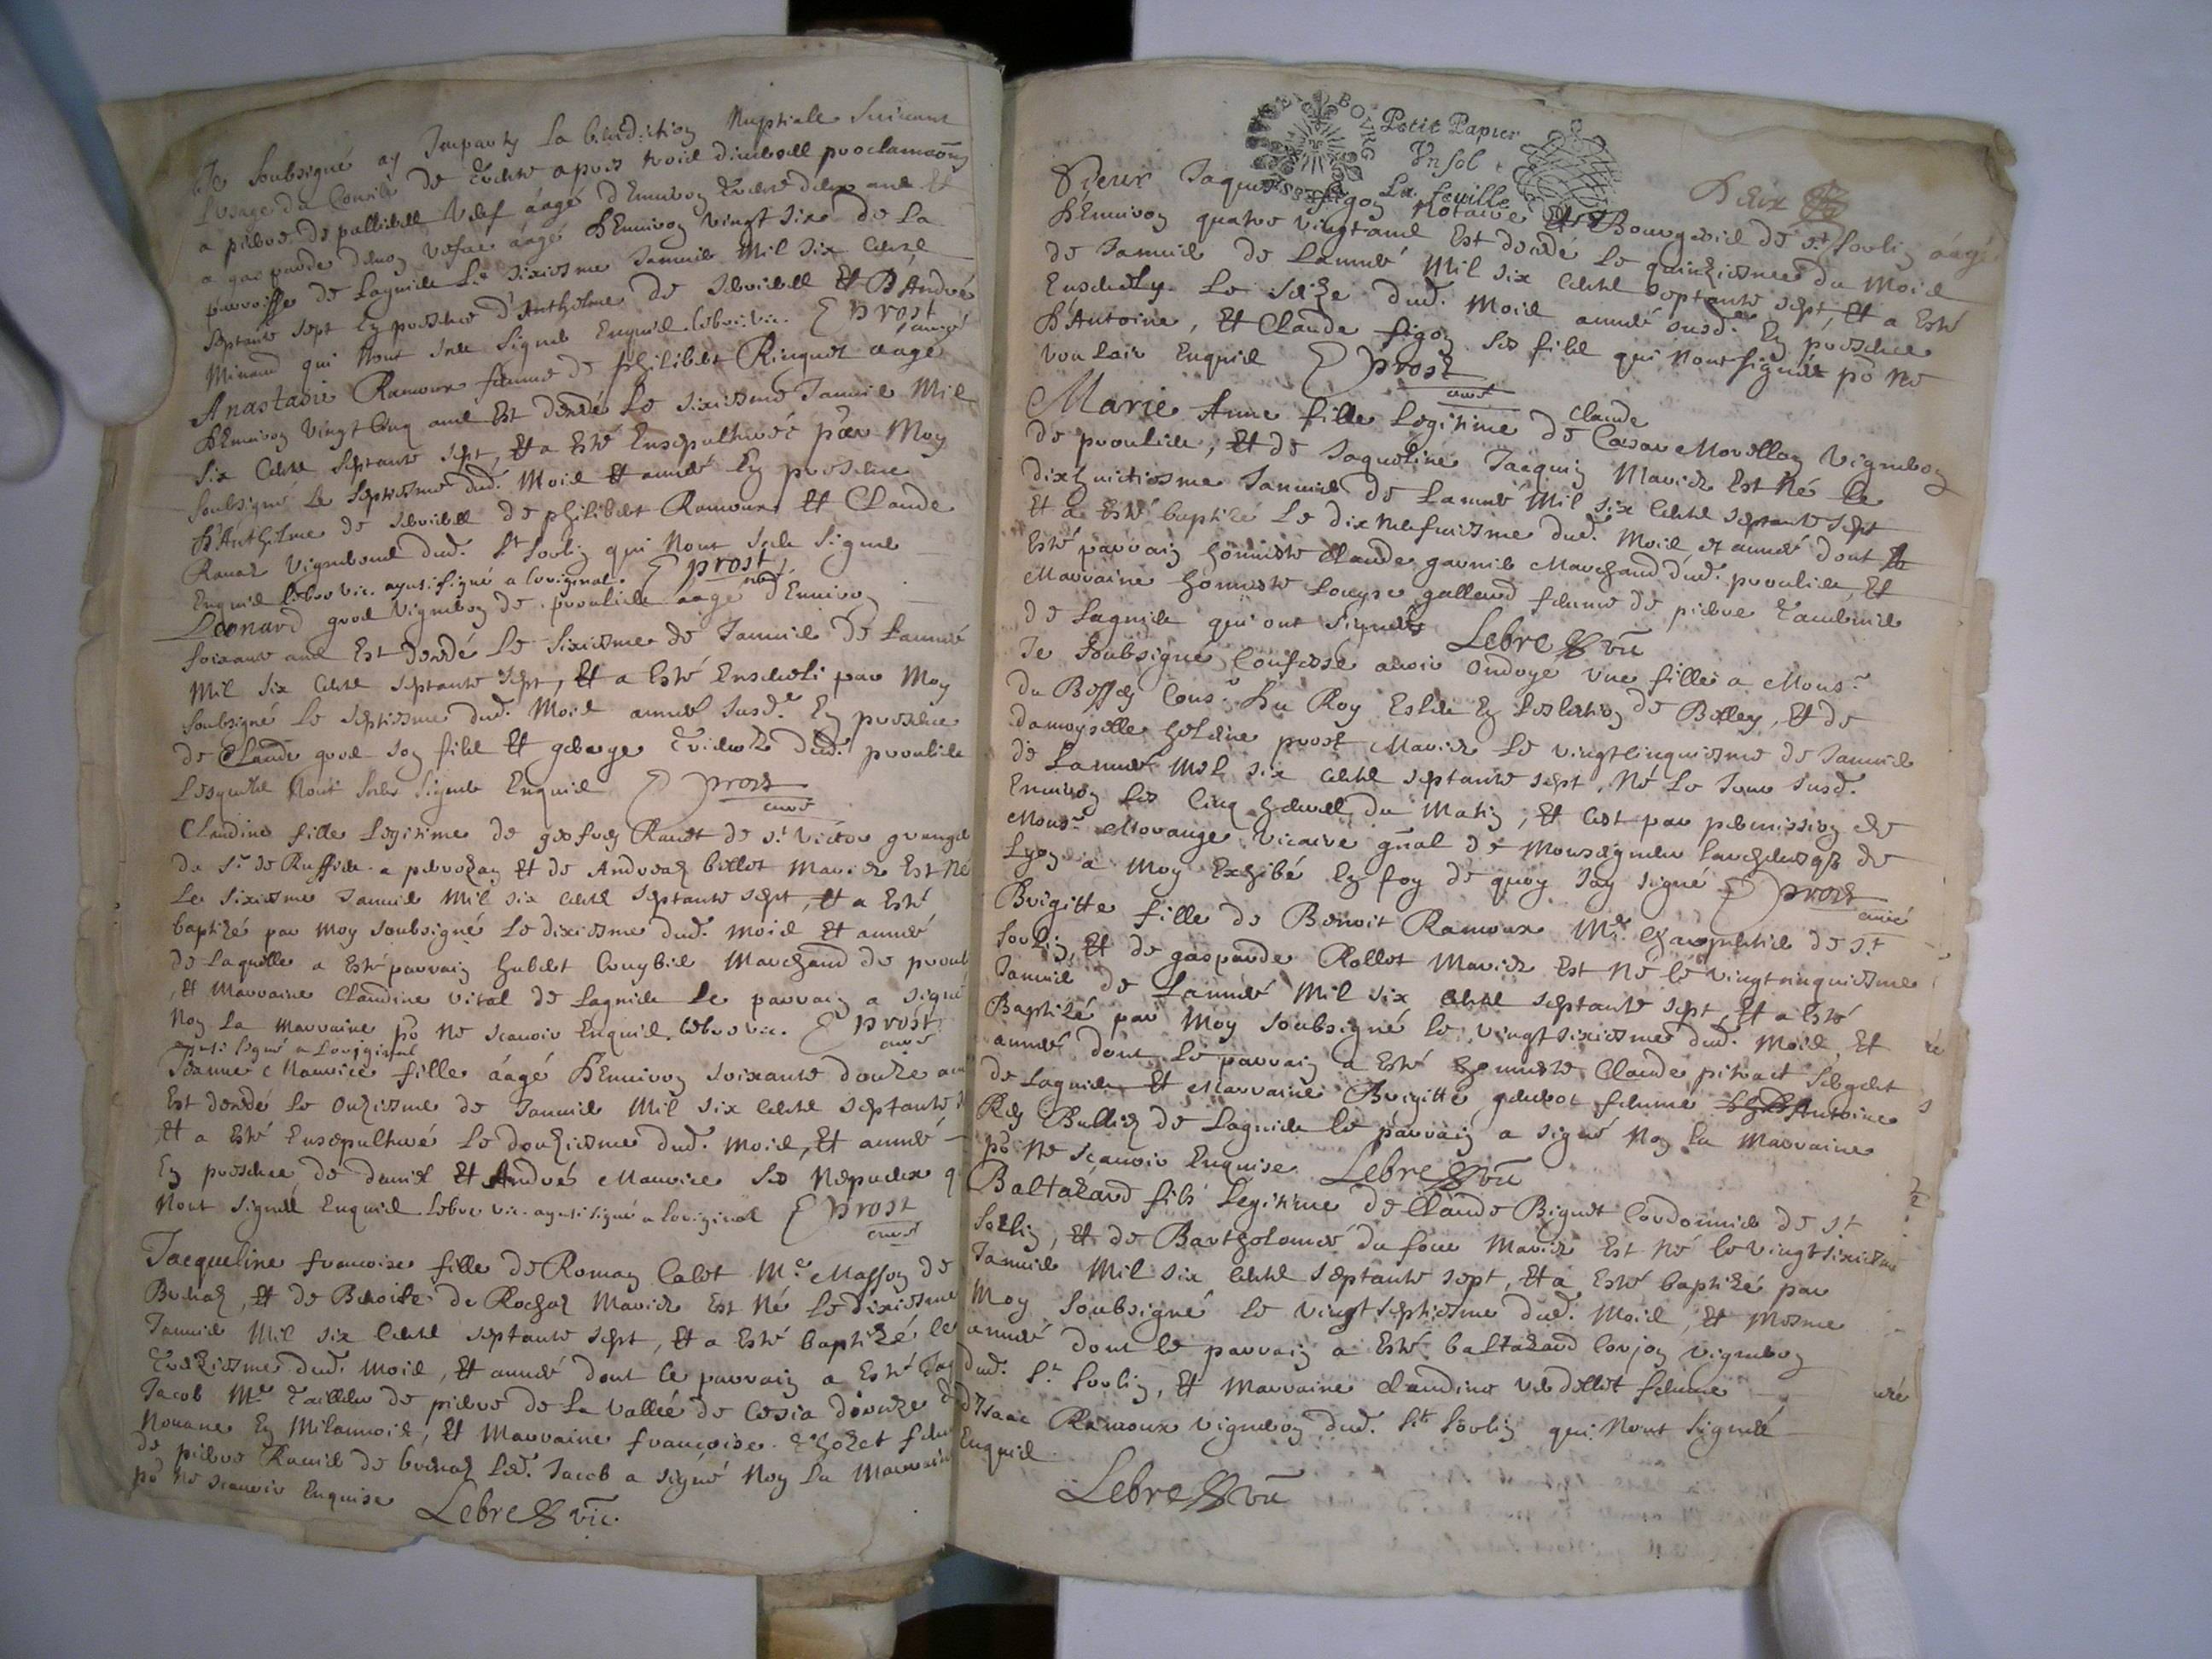 Je soubsigné ay Imparty La benediction Nuptiale suivant
Lusage du Concile de Trente apres trois diverses proclamaons
a pierre de vef aagé d'Environ Trente deux ans Et
a gasparde vefve aagé d'Environ Vingt six de La
parroisse de Lagnieu Le sixiesme Janvier Mil six cents
Septante sept En presence d'Anthelme de Et D'André
Minand qui Nont sceu signer Enquis Lebre vic. Prost curé
Anastasie Ramoux femme de philibert Rinquet aagé
d'Environ Vingt cinq ans Est decedé Le sixiesme Janvier Mil
Six Cents Septante sept, Et a Esté Ensepulturéé par Moy
Soubsigné Le Septiesme dud. Mois Et année En presence
d'Anthelme de de philibert Ramoux Et Claude
Vignerons dud. St Sorlin qui Nont sceu signer
Enquis Lebre vic. aynsi signé a Loriginal. Prost curé
Leonard Vigneron de proulieu aagé d'Environ
soixante ans Est decedé Le sixiesme de Janvier de Lannée
Mil six cents septante sept, Et a Esté Enseveli par Moy
Soubsigné Le septiesme dud. Mois année susd.e En presence
de Claude son fils Et george dud. proulieu
Lesquels Nont sceu signer Enquis Prost
curé
Claudine fille Legitime de geofrey de St Victor
du Sr de Ruffieu a perozan Et de Andrea billot Mariez Est Né
Le sixiesme Janvier Mil six cents septante sept, Et a Esté
baptizé par Moy soubsigné Le dixiesme dud. mois Et année
de Laquelle a Esté parrain hubert Marchand de proul
, Et Marraine Claudine vital de Lagnieu Le parrain a signé
Non La marraine po Ne scavoir Enquis. Lebre vic. Prost
aynsi signé a Loriginal curé
Jeanne Maurice fille aagé d'Environ soixante douze ans
Est decedé Le onziesme de Janvier Mil six cents septante
Et a Esté Ensepulturé Le douziesme dud. mois, Et année
En presence de daniel Et André Maurice ses Nepveux q
Nont signéz Enquis. Lebre vic. aynsi signé a Loriginal Prost
curé
Jacqueline francoise fille de Romain Calet Me Masson de
Et de Benoite de Rochaz Mariez Est Né Le dixiesme
Janvier Mil six Cents septante sept, Et a Esté baptizé le
Treziesme dud. mois, Et année dont le parrain a Esté
Jacob Me Tailleur de pierre de La Vallée de
Novare En Milannois, Et Marraine francoise
de pierre Led. Jacob a signé Non La Marraine
po Ne scavoir Enquise Lebre vic.
BOVRG
Petit Papier
Vn sol
La feuille
Sieur Jaques figon Notaire Et Bourgeois de St Sorlin aagé
d'Environ quatre vingt ans Est decedé Le quinziesme du Mois
de Janvier de Lannée Mil six Cents septante sept, Et a Esté
Ensevely Le seize dud. Mois année susd.e En presence
d'Antoine, Et Claude figon ses fils qui Nont signéz po Ne
vouloir Enquis Prost
curé
Claude
Marie Anne fille Legitime de Caesar Morellon Vigneron
de proulieu, Et de Jaqueline Jacquin Mariez Est Né Le
dixhuictiesme Janvier de Lannée Mil six Cents septante sept
Et a Esté baptizé Le dix Neufviesme dud. Mois et année dont
Esté parrain honneste Claude garnier Marchand dud. proulieu, Et
Marraine honneste Louyse galland femme de pierre
de Lagnieu qui ont signéz Lebre vic
Je Soubsigné Confesse avoir ondoyé une fille a Monsr
du Cons.r Du Roy Esleu En Leslection de Belley, Et de
damoyselle helene prost Mariez Le vingtcinquiesme de Janvier
de Lannée Mil six Cents septante sept, Né Le Jour susd.
Environ Les cinq heures du Matin, Et cest par permission de
Monsr Morange Vicaire gnal de Monseigneur Larchevesq de
Lyon a Moy Exhibé En foy de quoy Jay signé Prost
curé
Brigitte fille de Benoit Ramoux Me Charpentier de St
Sorlin, Et de gasparde Rollet Mariez Est Né le vingtcinquiesme
Janvier de Lannée Mil six Cents septante sept, Et a Esté
Baptizé par Moy soubsigné Le vingt sixiesme dud. Mois, Et
année, dont Le parrain a Esté honneste Claude
de Lagnieu Et Marraine Brigitte femme Antoine
de Lagnieu Le parrain a signé Non La Marraine
po Ne scavoir Enquise. Lebre vic
Baltazard fils Legitime de Claude Biguet Cordonnier de St
Sorlin, Et de Bartholomée du four Mariez Est Né Le vingt sixiesme
Janvier Mil six Cents septante sept, Et a Esté baptizé par
Moy Soubsigné Le vingt septiesme dud. Mois, Et Mesme
année dont Le parrain a Esté baltazard Vigneron
dud. St Sorlin, Et Marraine Claudine femme
d'Isaac Ramoux vigneron dud. St Sorlin qui Nont signéz
Enquis
Lebre vic